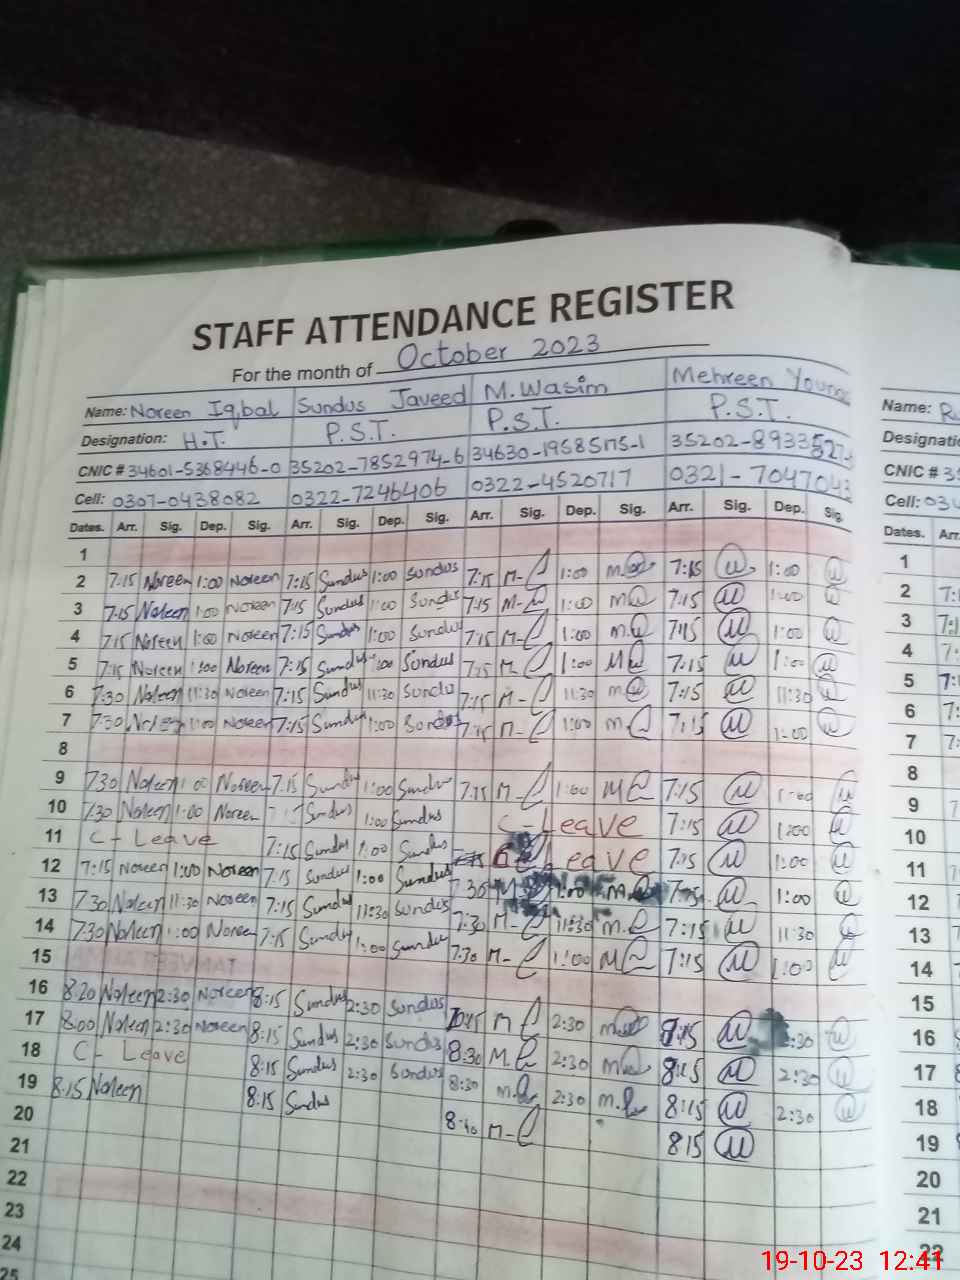 STAFF ATTENDANCE REGISTER
For the month of October 2023
Name: Noreen Iqbal Sundus Javeed M.Wasim Mehreen
Designation: H.T. P.S.T. P.S.T. P.S.T.
CNIC # 34601-5368446-0 35202-7852974-6 34630-19585175-1 35202-
Cell: 0307-0438082 0322-7246406 0322-4520717 0321-
Dates. Arr. Sig. Dep. Sig. Arr. Sig. Dep. Sig. Arr. Sig. Dep. Sig. Arr. Sig. Dep. Sig.
1
2 7:15 Noreen 1:00 Noreen 7:15 Sundus 1:00 Sundus 7:15 1:00 7:15 1:00
3 7:15 Noreen 1:00 Noreen 7:15 Sundus 1:00 Sundus 7:15 1:00 7:15 1:00
4 7:15 Noreen 1:00 Noreen 7:15 Sundus 1:00 Sundus 7:15 1:00 7:15 1:00
5 7:15 Noreen 1:00 Noreen 7:15 Sundus Sundus 7:15 1:00 7:15 1:00
6 7:30 Noreen 11:30 Noreen 7:15 Sundus 11:30 7:15 11:30 7:15 11:30
7 7:30 Noreen 1:00 Noreen 7:15 Sundus 1:00 Sundus 7:15 1:00 7:15 1:00
8
9 7:30 Noreen 1:00 Noreen 7:15 Sundus 1:00 Sundus 7:15 1:00 7:15 1:00
10 7:30 Noreen 1:00 Noreen Sundus 1:00 Sundus C-Leave 7:15 1:00
11 C-Leave 7:15 Sundus 1:00 Sundus Leave 7:15 1:00
12 7:15 Noreen 1:00 Noreen 7:15 Sundus 1:00 Sundus 7:30 1:00 1:00
13 7:30 Noreen 11:30 Noreen 7:15 Sundus 11:30 Sundus 7:30 11:30 7:15 11:30
14 7:30 Noreen 1:00 Noreen 7:15 Sundus 1:00 Sundus 7:30 1:00 7:15 1:00
15
16 8:20 Noreen 2:30 Noreen 8:15 Sundus 2:30 Sundus 2:30 8:15
17 8:00 Noreen 2:30 Noreen 8:15 Sundus 2:30 Sundus 8:30 2:30 8:15 2:30
18 C-Leave 8:15 Sundus 2:30 Sundus 8:30 2:30 8:15 2:30
19 8:15 Noreen 8:15 Sundus 8:40 8:15
20
21
22
23
24
25
Name:
CNIC # 3
Cell:
Dates. Arr.
1
2
3
4
5
6
7
8
9
10
11
12
13
14
15
16
17
18
19
20
21
22
19-10-23 12:41